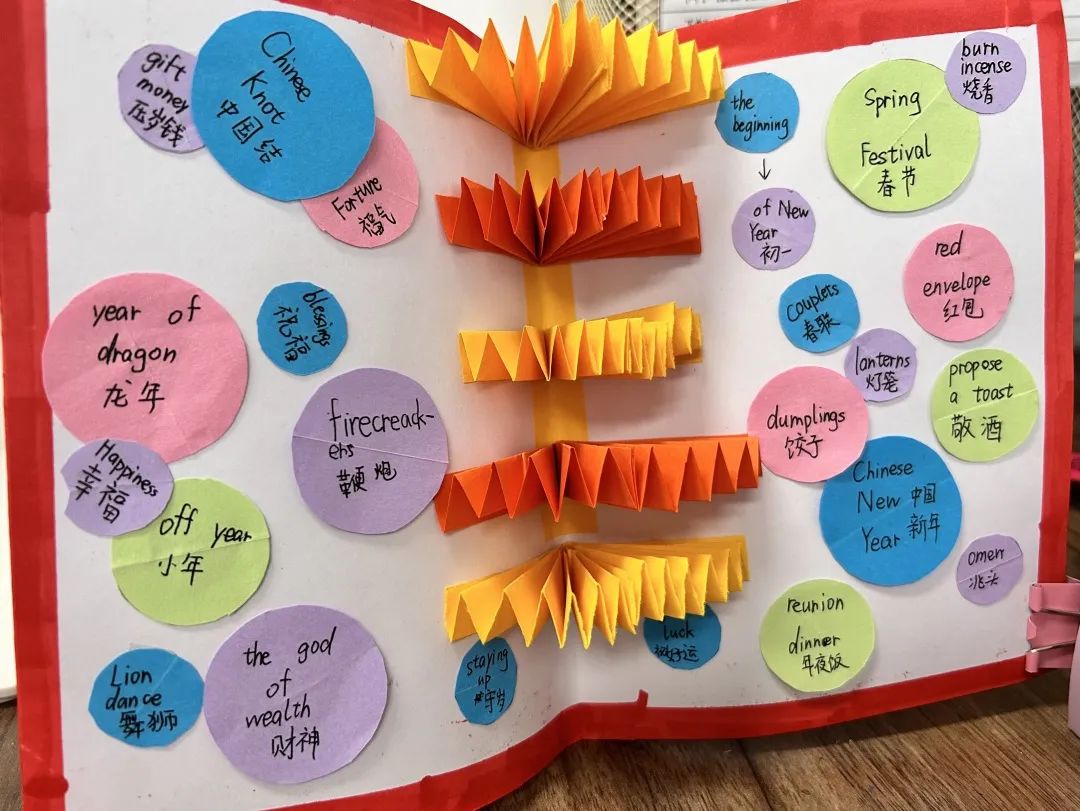 gift
money
压岁钱
Chinese
Knot
中国结
Fortune
福气
year of
dragon
龙年
blessings
祝福
firecreack-
ers
鞭炮
Happiness
幸福
off year
小年
Lion
dance
舞狮
the god
of
wealth
财神
staying
up
守岁
the
beginning
↓
of New
Year
初一
Spring
Festival
春节
burn
incense
烧香
red
envelope
红包
couplets
春联
lanterns
灯笼
propose
a toast
敬酒
dumplings
饺子
Chinese
New 中国
Year 新年
omen
兆头
reunion
dinner
年夜饭
luck
好运